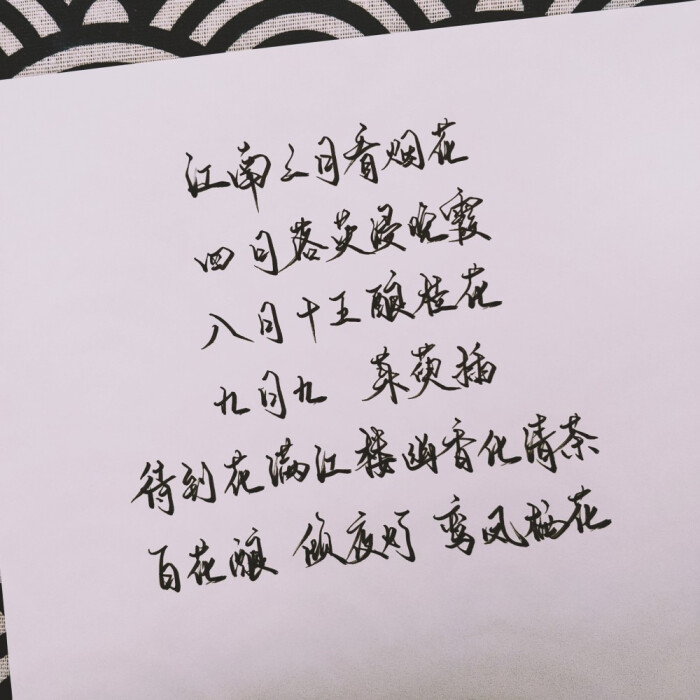 江南三月看烟花
四月落英浸晚霞
八月十五酿桂花
九月九 茱萸插
待到花满江楼幽香化清茶
百花酿 倾夜灯 鸾凤栖花